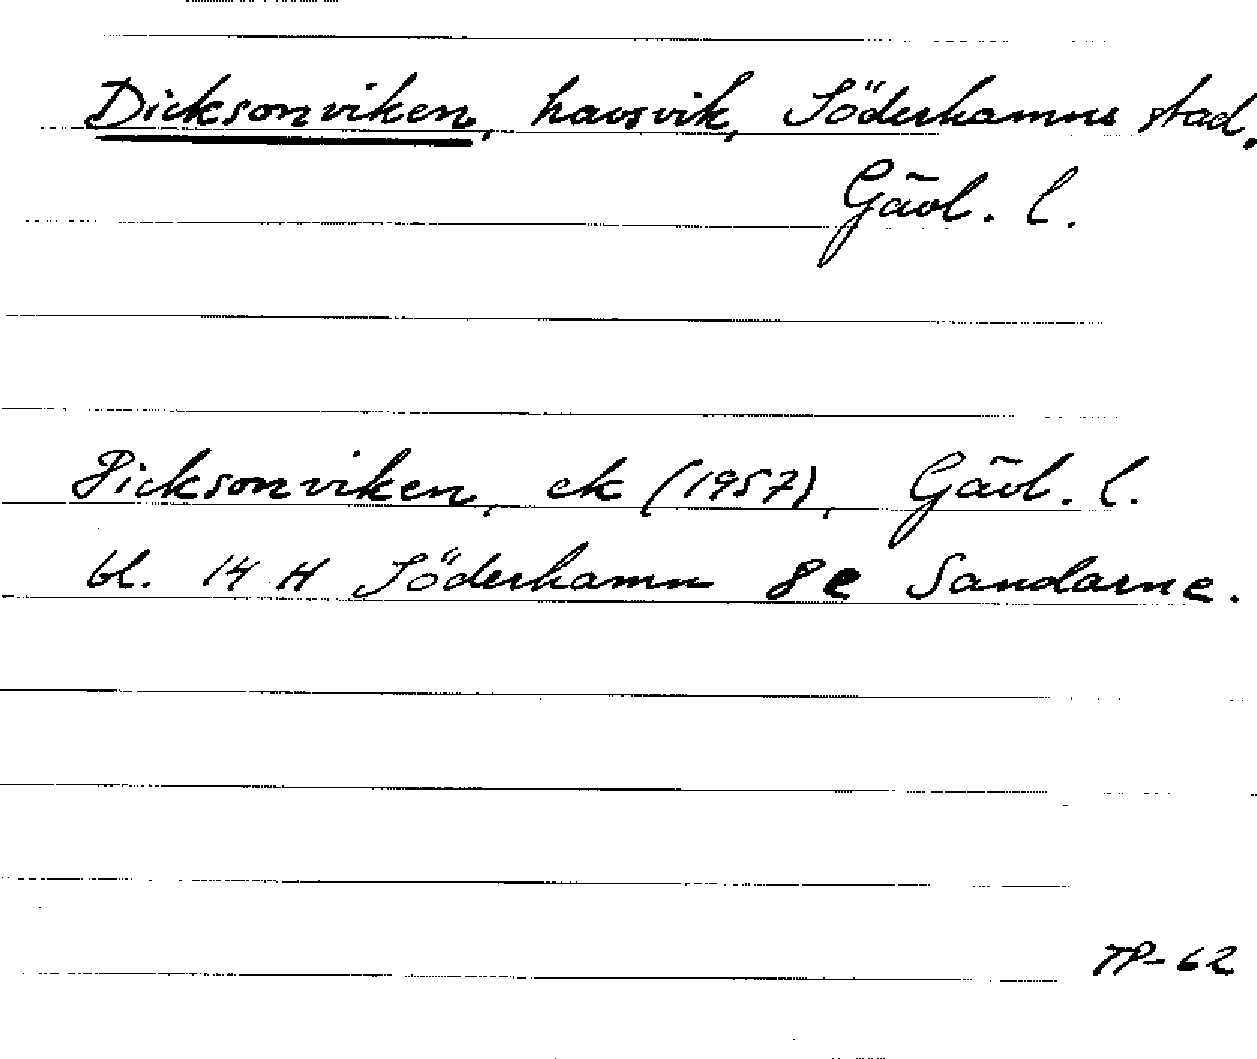 Dicksonviken, havsvik, Söderhamns stad.
Gävl. l.
Dicksonviken, ek (1957), Gävl. l.
bl. 14 H Söderhamn 8e Sandarne.
TP-62